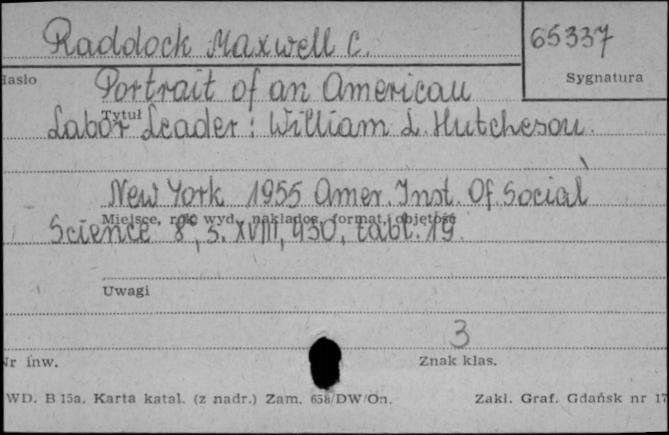 Raddock Maxwell C.
65337
Hasło
Sygnatura
Portrait of an American
Tytuł
Labor Leader: William L. Hutcheson.
New York 1955 Amer. Inst. Of Social
Miejsce, rok wyd., nakładca, format, objętość
Science 8°, s. XVIII, 430, tabl. 19.
Uwagi
3
Nr inw.
Znak klas.
WD. B 15a. Karta katal. (z nadr.) Zam. 658/DW/On.
Zakl. Graf. Gdańsk nr 17